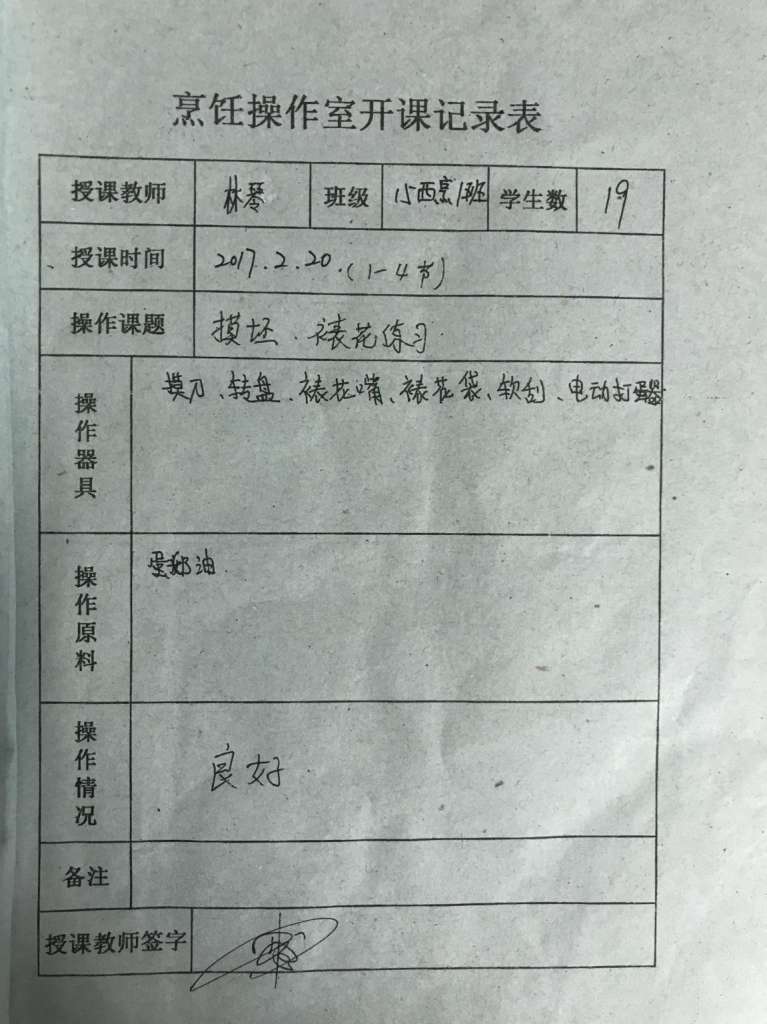 烹饪操作室开课记录表
授课教师 林琴 班级 15西烹1班 学生数 19
、授课时间 2017.2.20.(1-4节)
操作课题 摸坯.裱花练习.
操作器具 摸刀、转盘.裱花嘴、裱花袋、软刮、电动打蛋器
操作原料 油.
操作情况 良好.
备注
授课教师签字